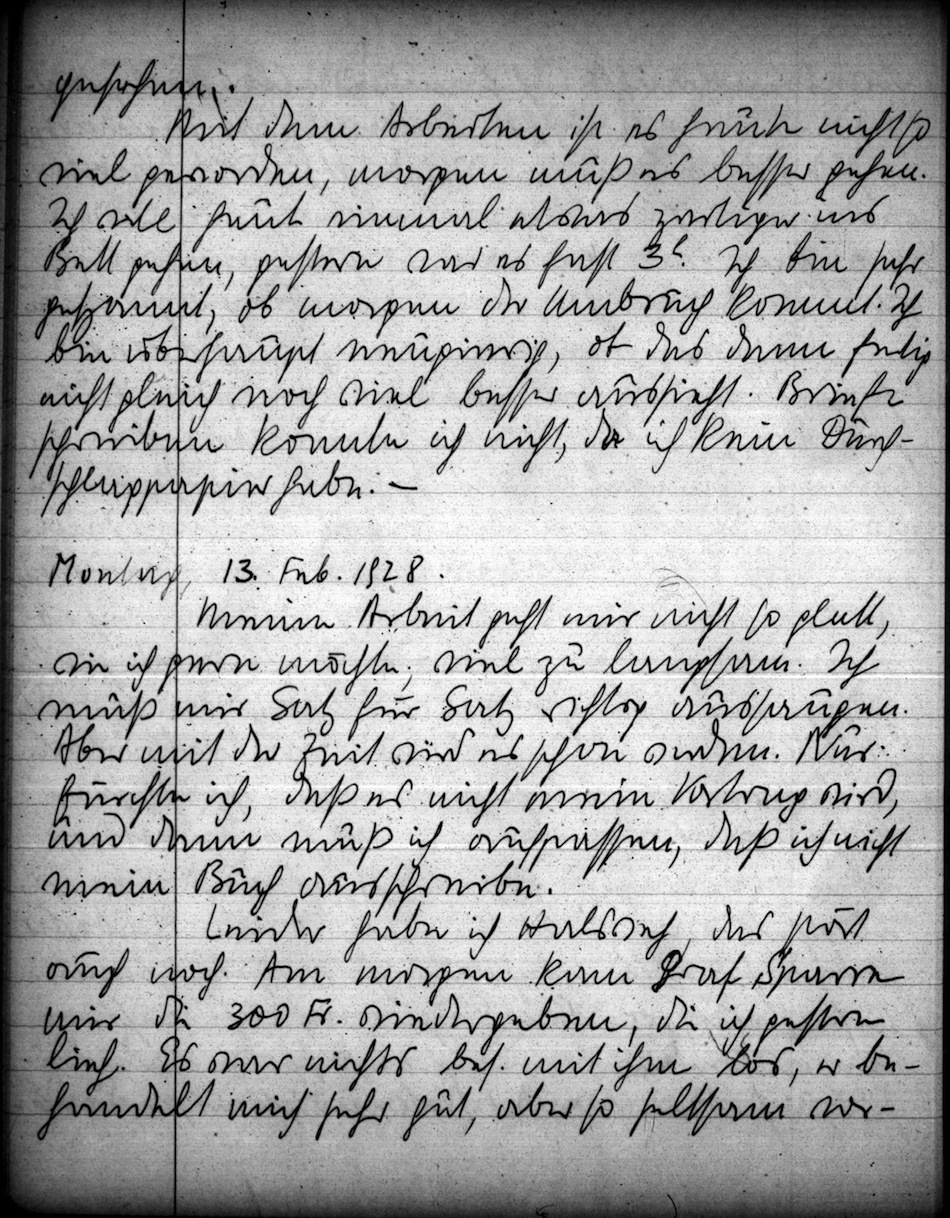 gesehen.
Mit dem Arbeiten ist es heute nicht so
viel geworden, morgen muß es besser gehen.
Ich will heute einmal etwas zeitiger ins
Bett gehen, gestern war es fast 3h. Ich bin sehr
gespannt, ob morgen der Umbruch kommt. Ich
bin überhaupt neugierig, ob das dann fertig
nicht gleich noch viel besser aussieht. Briefe
schreiben konnte ich nicht, da ich kein Durch-
schlagpapier habe. –
Montag, 13. Feb. 1928.
Meine Arbeit geht mir nicht so glatt,
wie ich gern möchte, viel zu langsam. Ich
muß mir Satz für Satz richtig aussaugen.
Aber mit der Zeit wird es schon werden. Nur
fürchte ich, daß es nicht mein Vortrag wird,
und dann muß ich aufpassen, daß ich nicht
mein Buch ausschreibe.
Leider habe ich Halsweh, das stört
auch noch. Am morgen kam Graf Sparre
mir die 300 Fr. wiedergeben, die ich gestern
lieh. Es war nichts bes. mit ihm los, er be-
handelt mich sehr gut, aber so seltsam vor-